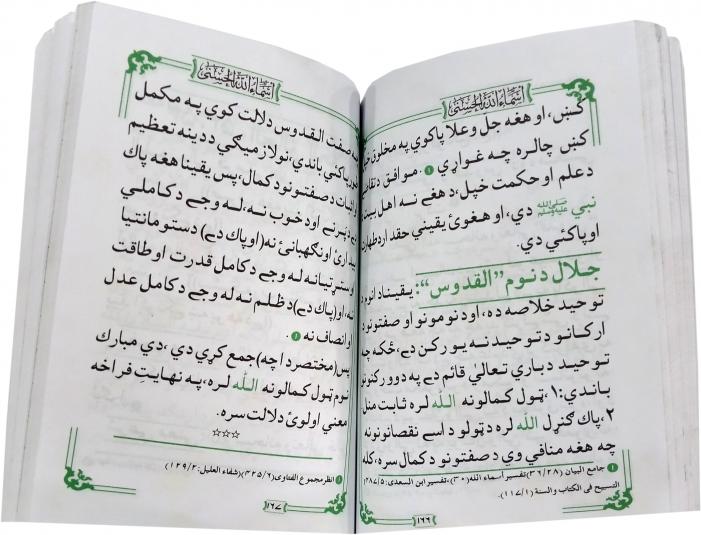 اسماء الله الحسنى
کښ، او هغه جل وعلا پاکوي په مخلوق
کښ چالره چه غواړي ① موافق د تقاضې
د علم او حکمت خپل، د هغے نه اهل بيت
نبي ﷺ دي، او هغوئ يقيني حقدار د طهارت
او پاکئي دي.
جلال د نوم "القدوس": يقيناً دا نوم د
توحيد خلاصه ده، او د نومونو او صفتونو د
ارکانو د توحيد نه يو رکن دے، ځکه چه
توحيد د باري تعالٰي قائم دے په دوو رکنونو
باندي: ۱، ټول کمالونه الله لره ثابت منل
۲، پاک ګنړل الله لره د ټولو د اسے نقصانونو نه
چه هغه منافي وي د صفتونو د کمال سره، کله
① جامع البيان (٣٦/٢٨) تفسير أسماء الله (٣٠)، تفسير ابن السعدي: ٢٨٧/٥
التسبيح في الكتاب والسنة (١١٧/١).
١٦٦
اسماء الله الحسنى
صفت القدوس دلالت کوي په مکمل
پاکئي باندي، نو لازميږي د دينه تعظيم
اثبات د صفتونو د کمال، پس يقينا هغه پاک
دے د پرنے او د خوب نه، له وجے د کاملي
بيدارئ او نګهبانئ نه (او پاک دے) د ستومانتيا
او ستړتيا نه له وجے د کامل قدرت او طاقت
نه، او (پاک دے) د ظلم نه له وجے د کامل عدل
او انصاف نه ①
پس (مختصر دا چه) جمع کړي دي، دي مبارک
نوم ټول کمالونه الله لره، په نهايتِ فراخه
معني او لوئ دلالت سره.
☆☆☆
① انظر مجموع الفتاوى (٤٢٥/٦) (شفاء العليل: ١٢٩/٢)
١٦٧